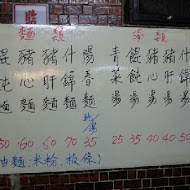 麵類
餛飩麵
豬心麵
豬肝麵
什錦麵
陽春麵
60 60 70 35
湯類
青菜湯
餛飩湯
豬心湯
豬肝湯
什錦湯
25 35 40 40 50
油麵、米粉、板條)